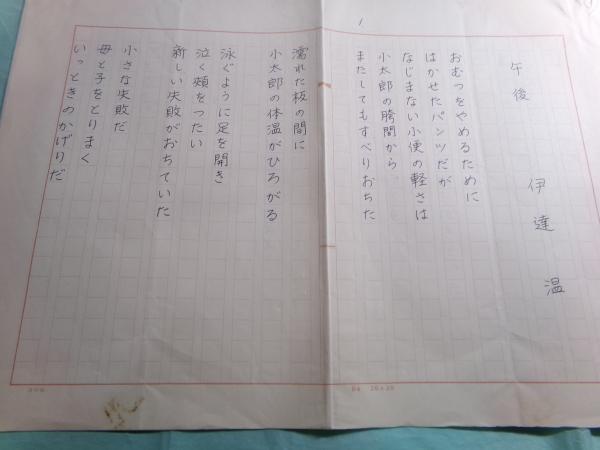 1
午後
伊達 温
おむつをやめるために
はかせたパンツだが
なじまない小便の軽さは
小太郎の胯間から
またしてもすべりおちた
濡れた板の間に
小太郎の体温がひろがる
泳ぐように足を開き
泣く頬をつたい
新しい失敗がおちていた
小さな失敗だ
母と子をとりまく
いっときのかげりだ
B4 20×20